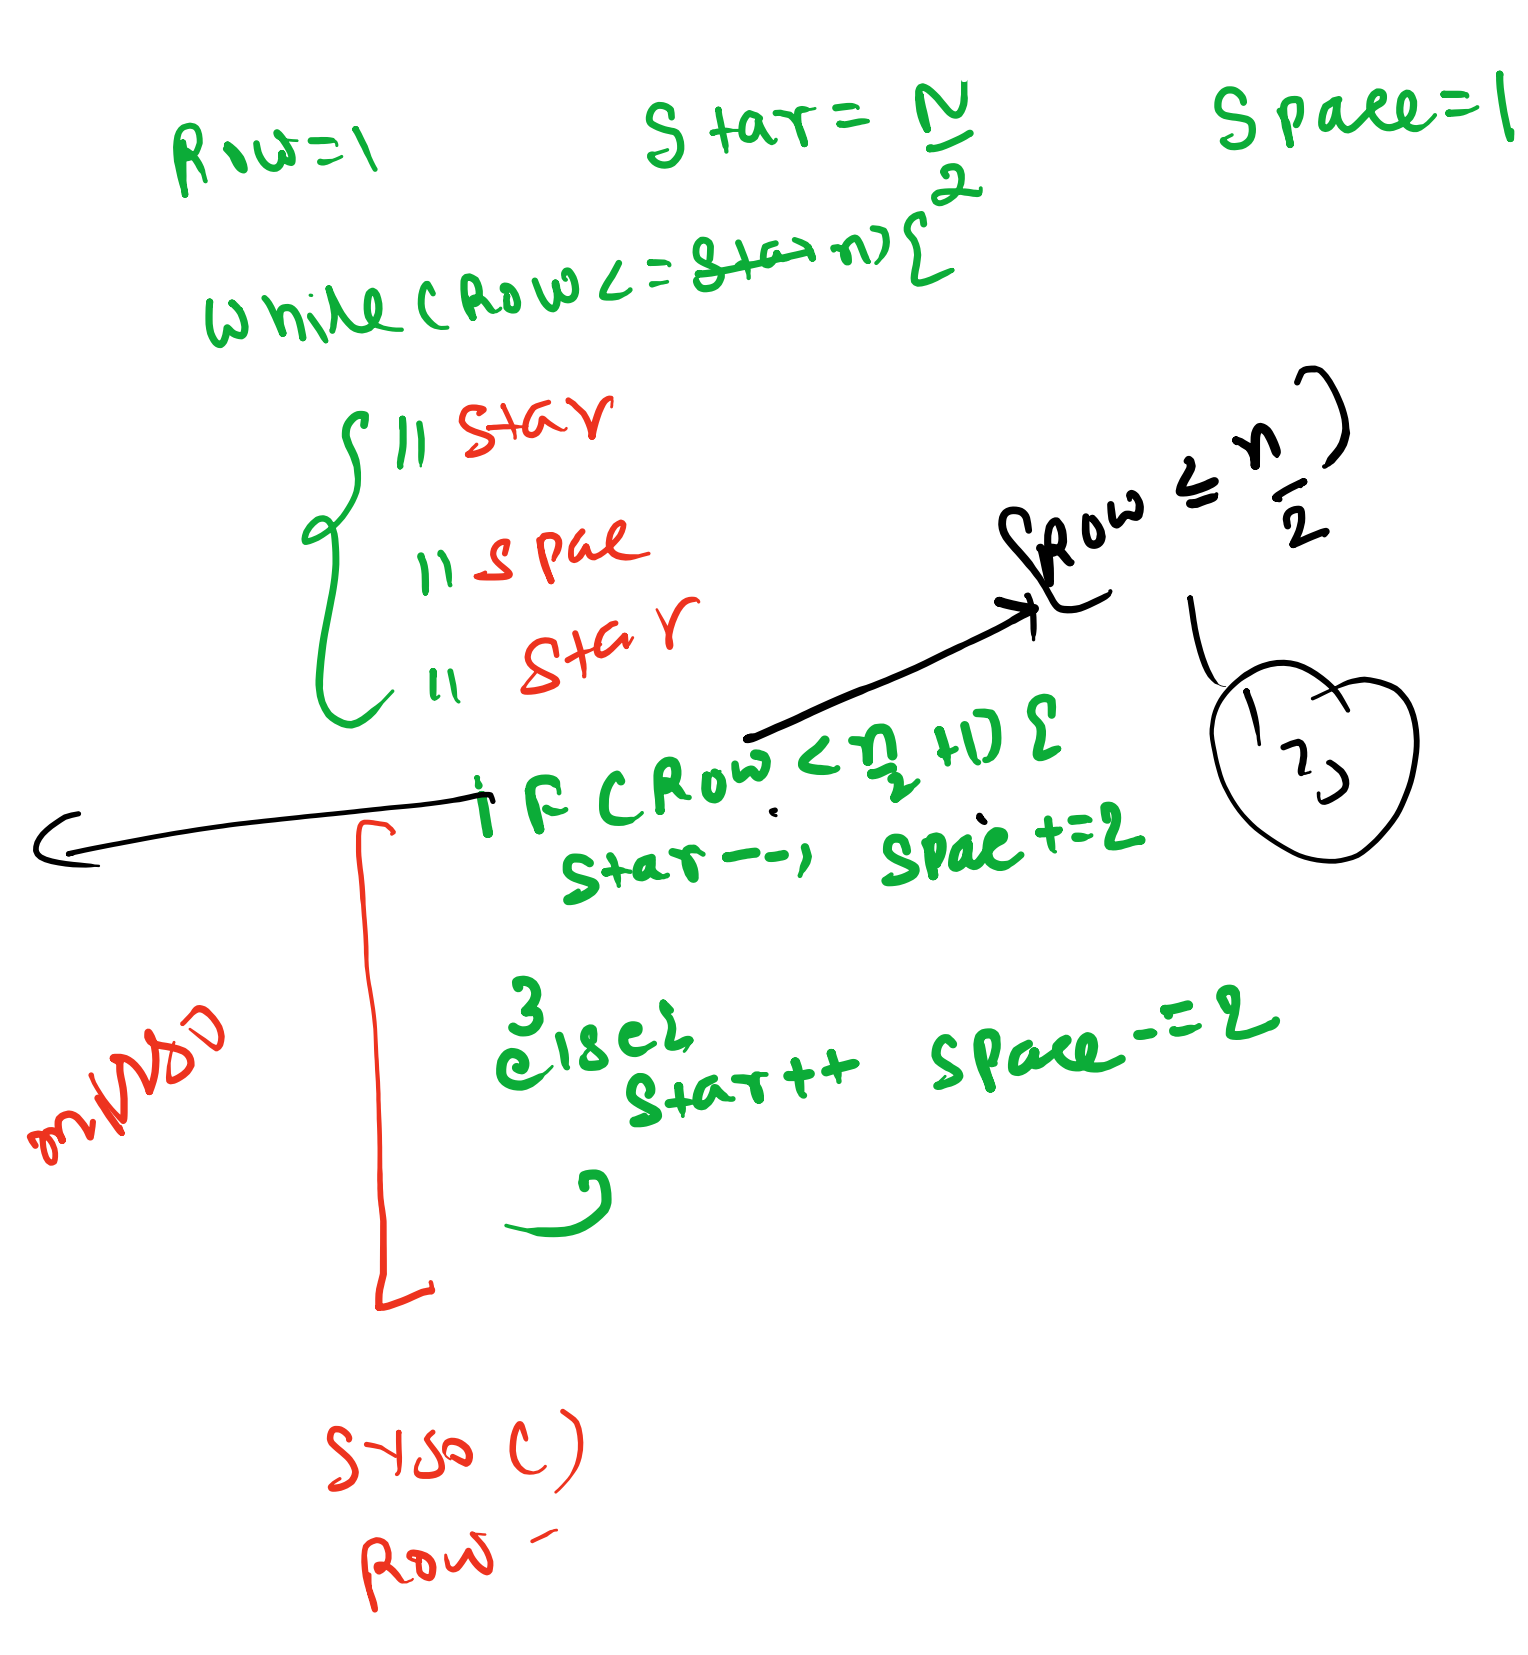 Row=1 Star=N/2 Space=1
while(Row<=n){
// star
// spac
// star
(Row ≤ n/2)
if(Row<n/2+1){
1 2 3
Star--, spac+=2
}
else{
Star++ Space-=2
}
Syso()
Row -